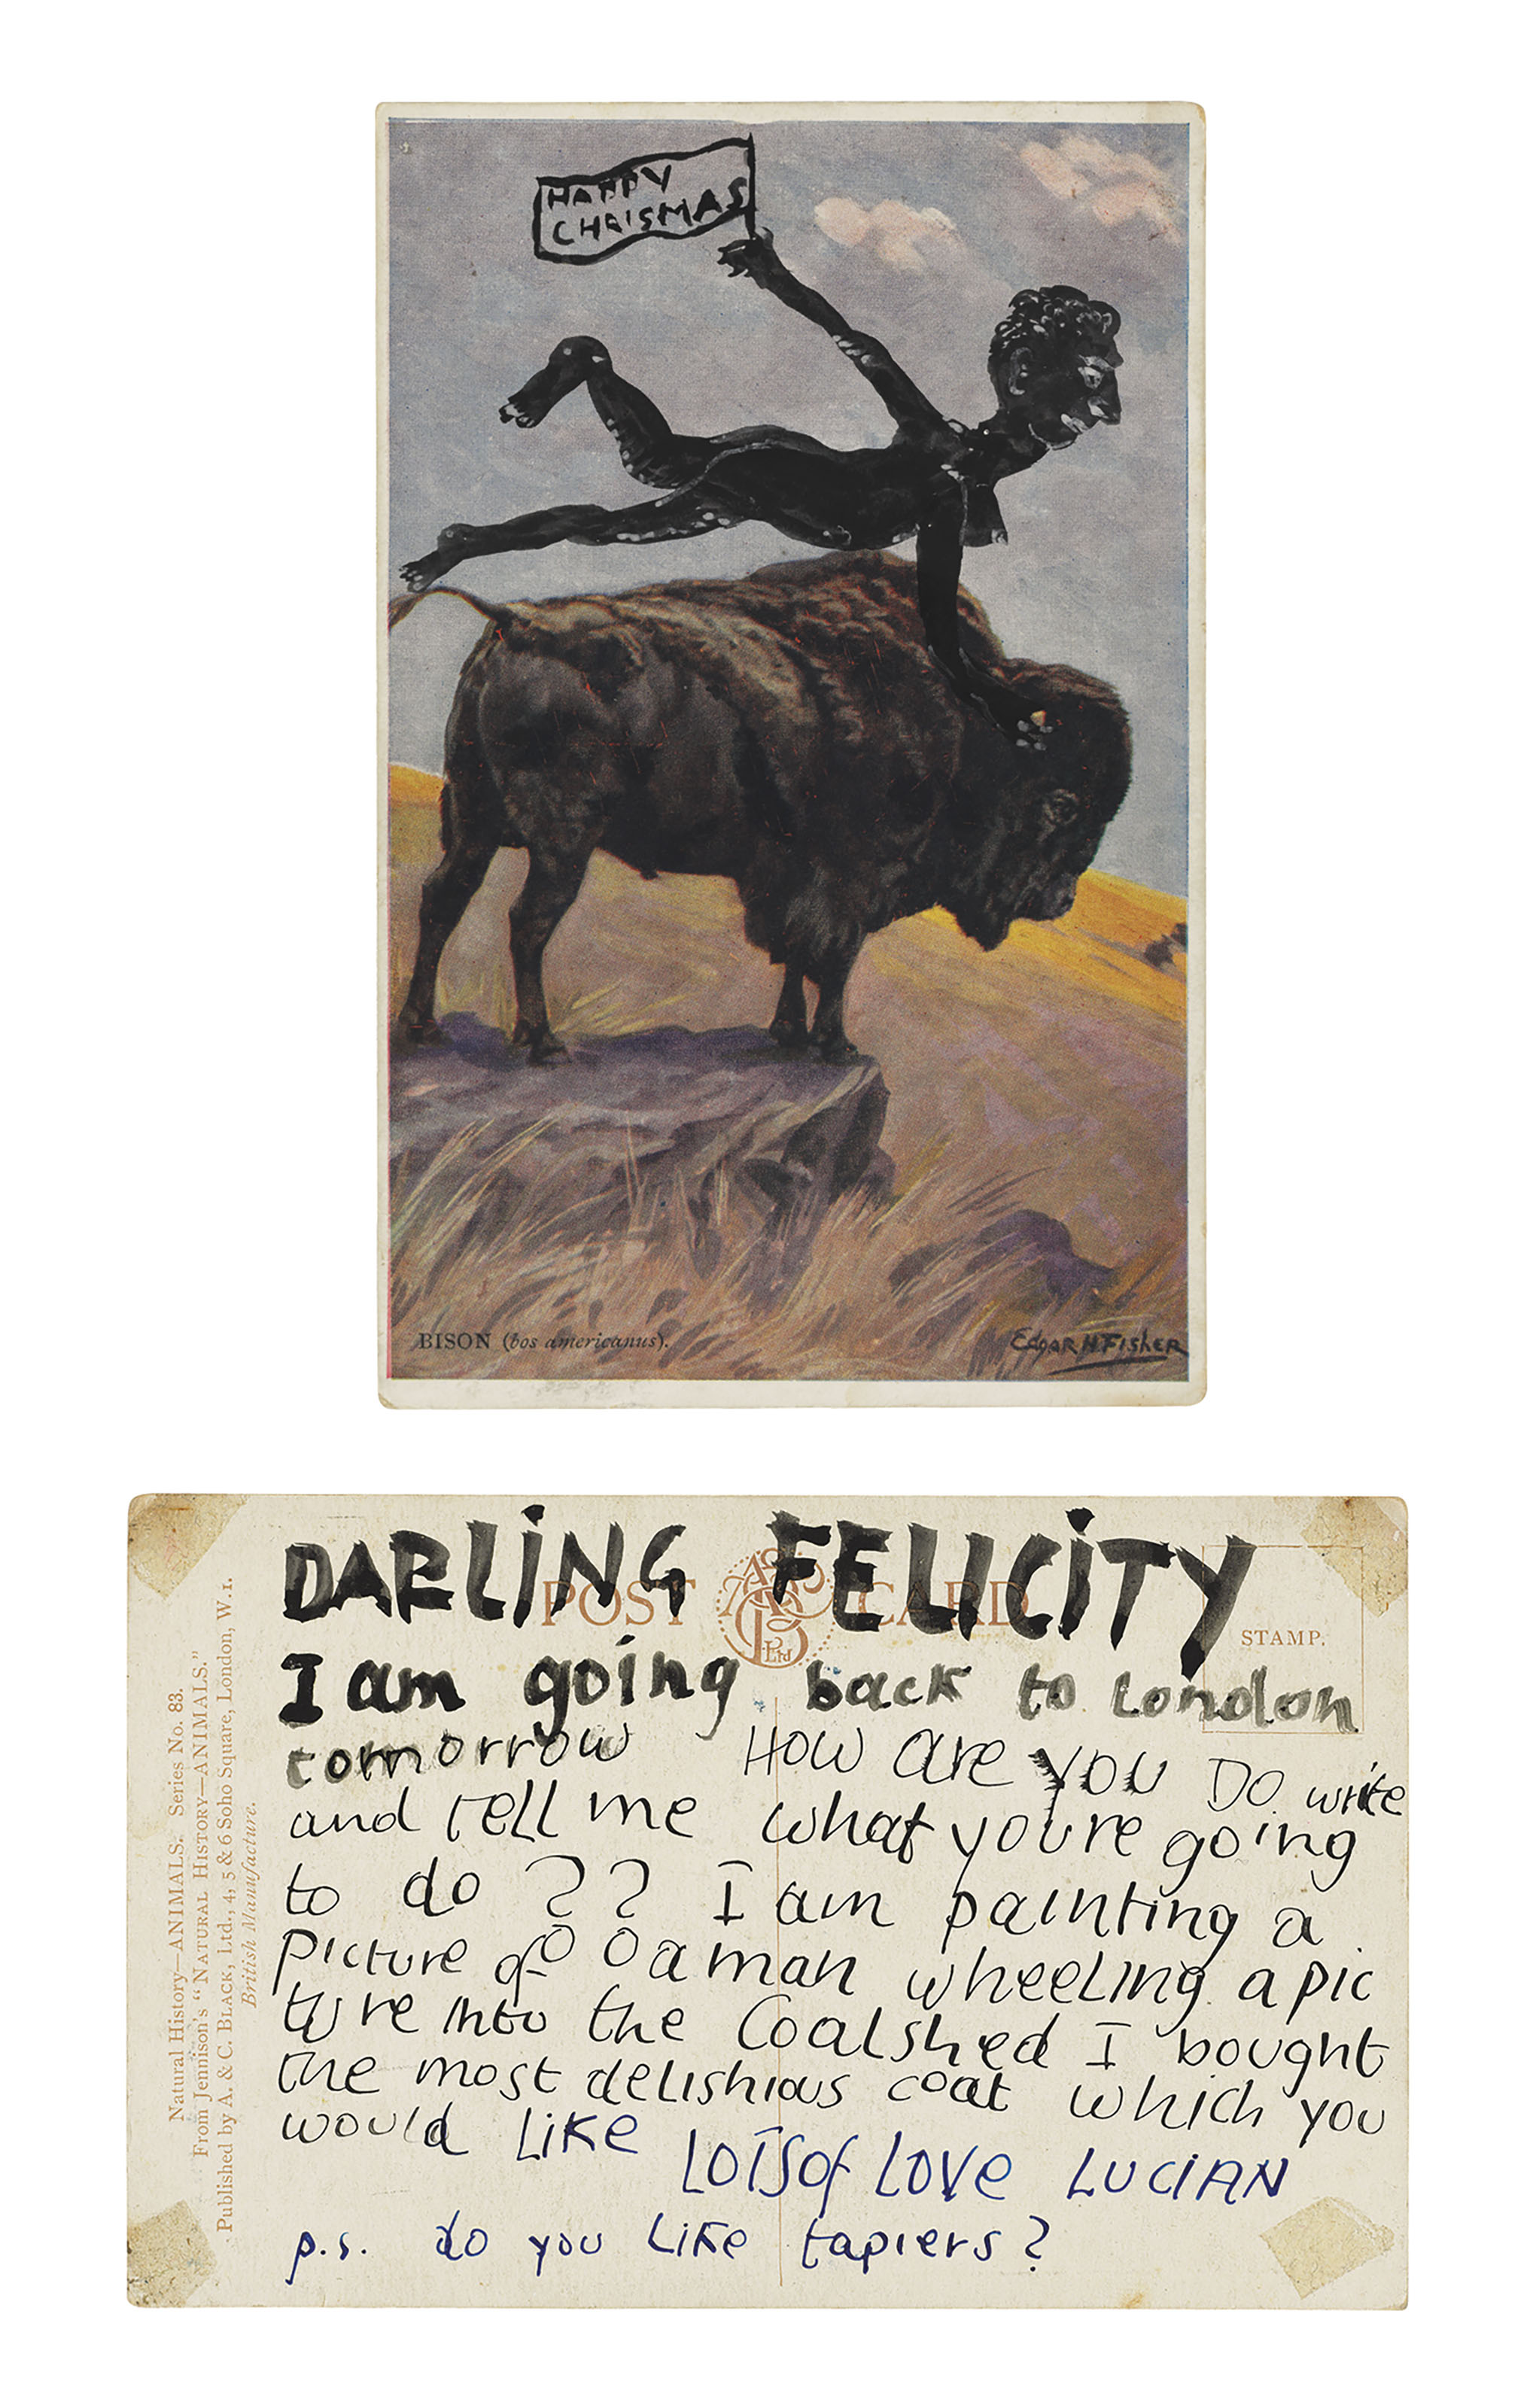 HAPPY
CHRISMAS
BISON (bos americanus).
Edgar H. Fisher
POST CARD
A & C B Ltd
STAMP.
Natural History—ANIMALS. Series No. 83.
From Jennison's "Natural History—Animals."
Published by A. & C. Black, Ltd., 4, 5 & 6 Soho Square, London, W.1.
British Manufacture.
DARLING FELICITY
I am going back to London
tomorrow How are you Do write
and tell me what youre going
to do ? ? I am painting a
picture of a man wheeling a pic
ture into the Coalshed I bought
the most delishious coat which you
would like LOTS of LOVE LUCIAN
p.s. do you like tapiers?